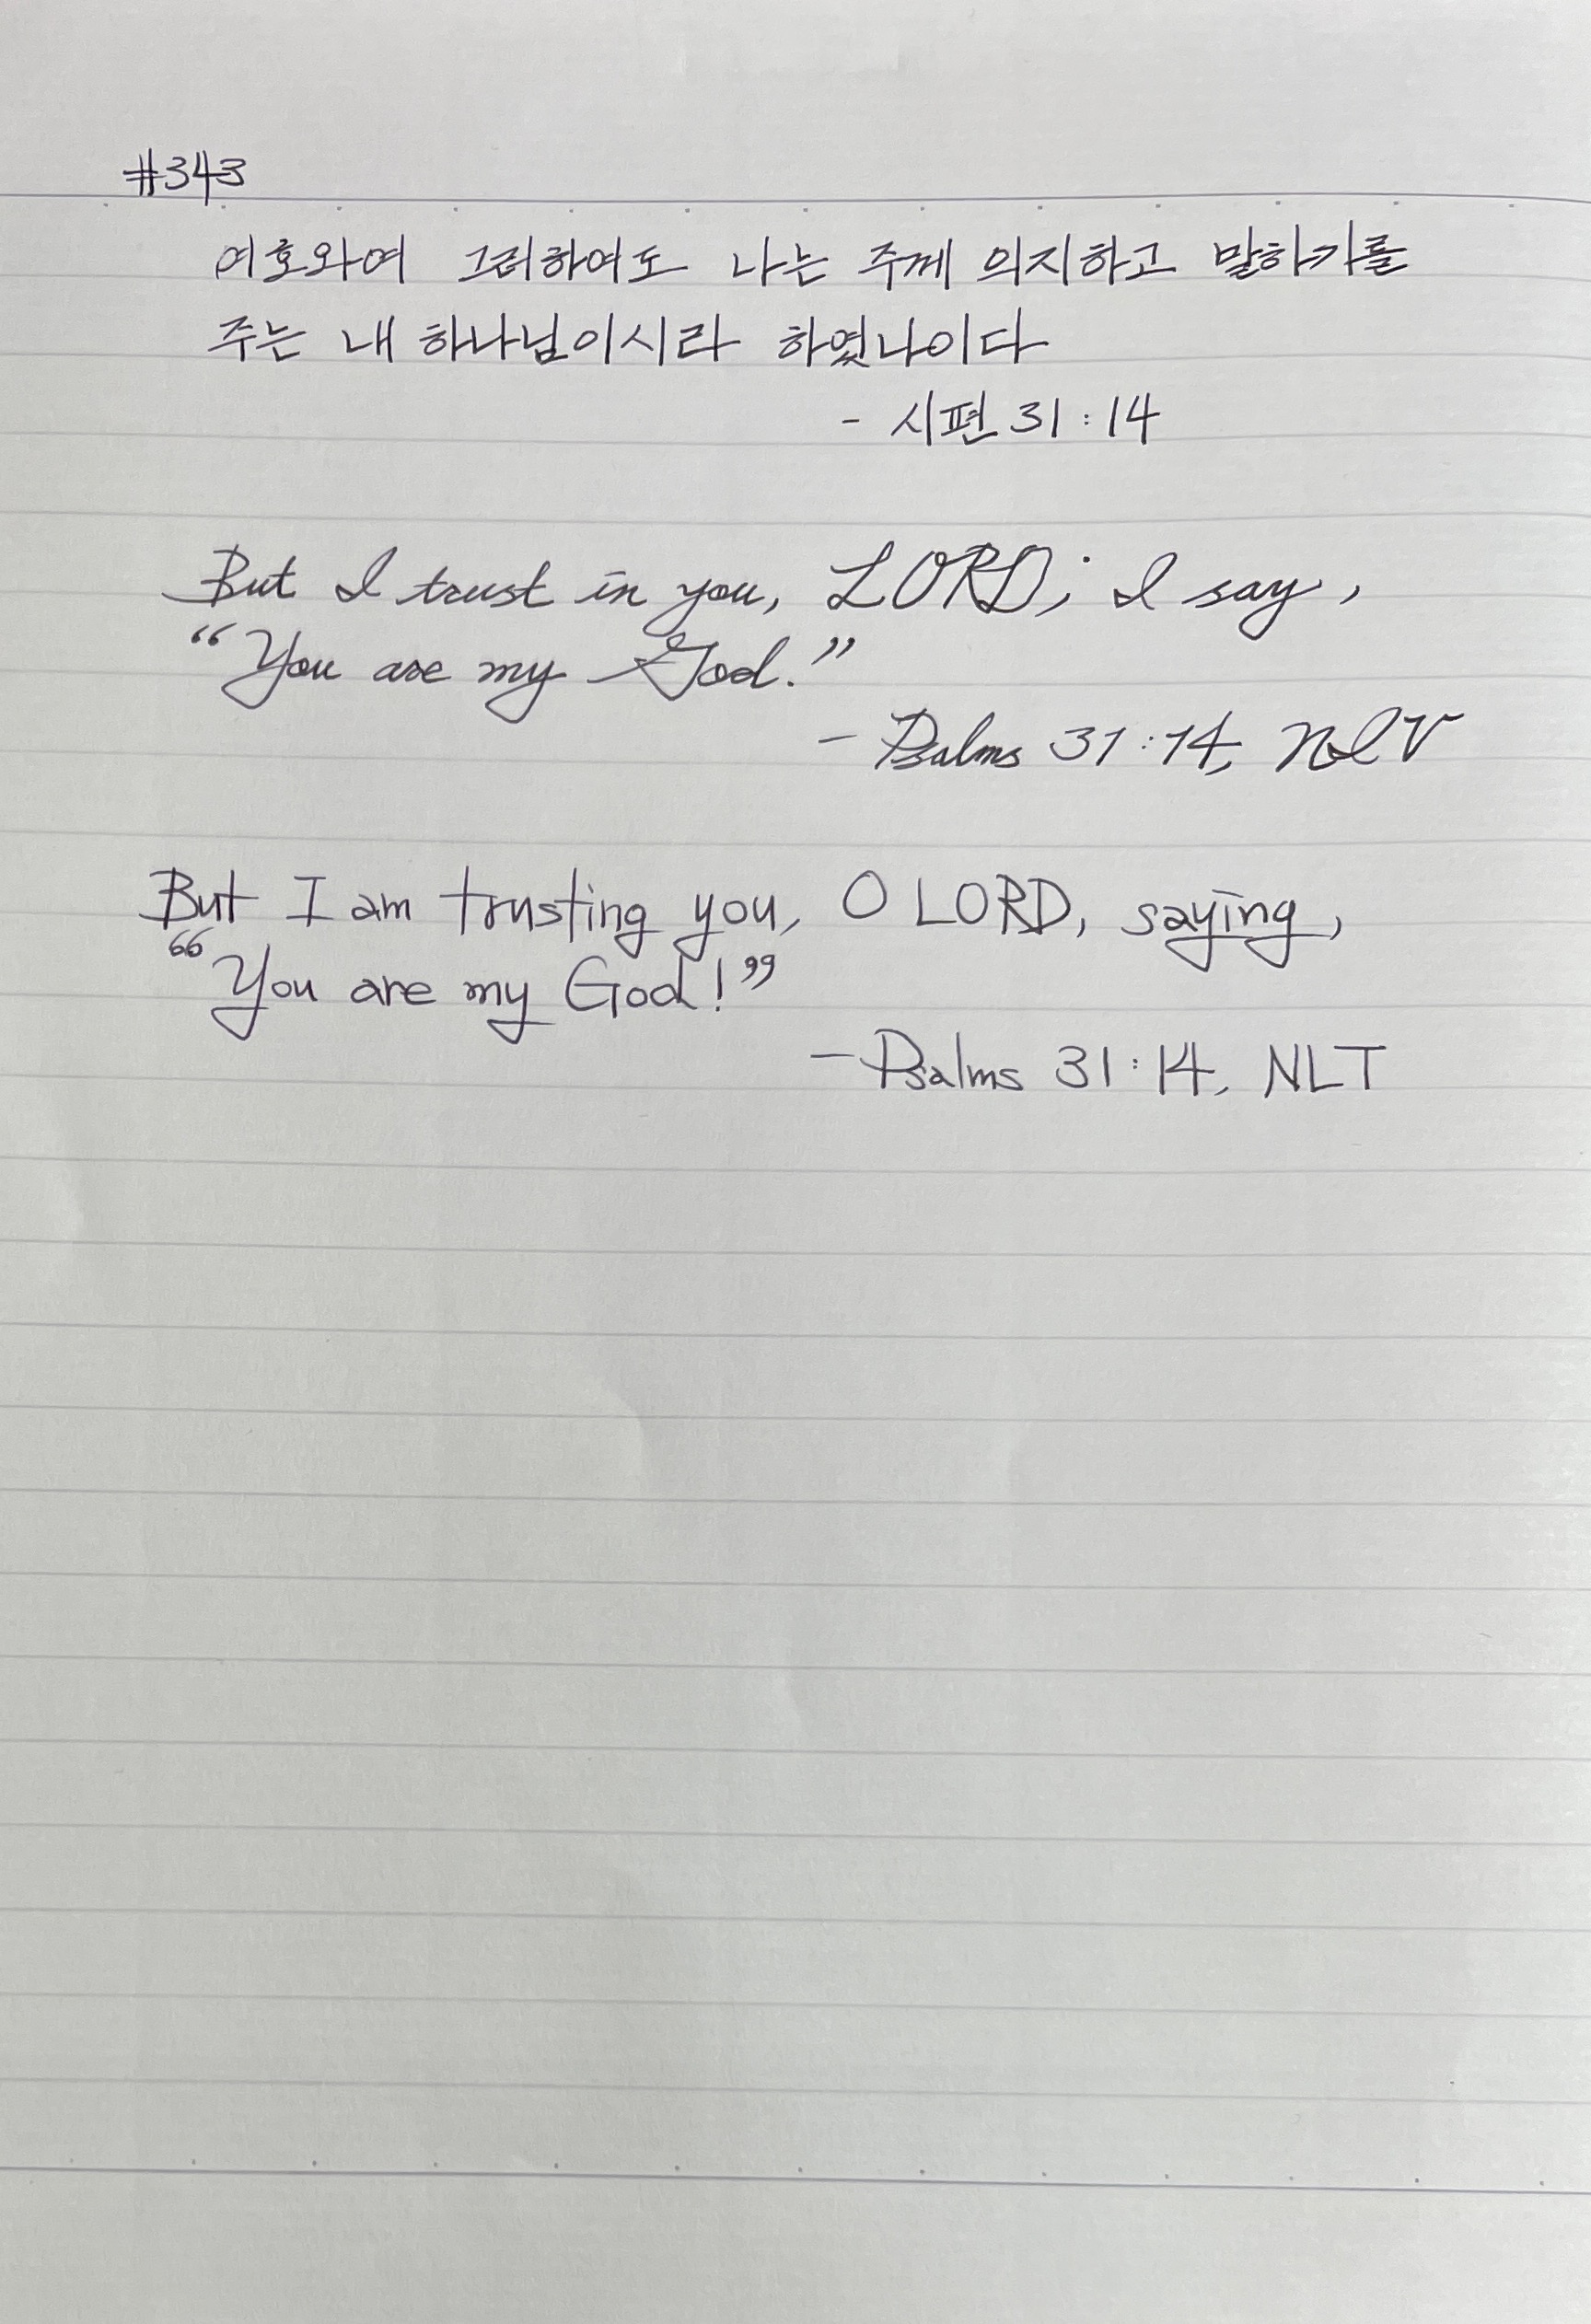 #343
여호와여 그러하여도 나는 주께 의지하고 말하기를
주는 내 하나님이시라 하였나이다
- 시편 31:14
But I trust in you, LORD; I say,
“You are my God.”
- Psalms 31:14, NIV
But I am trusting you, O LORD, saying,
“You are my God!”
- Psalms 31:14, NLT